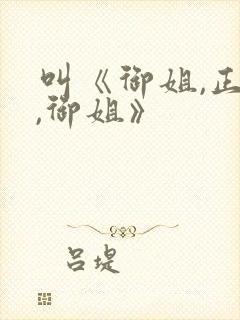 叫《御姐,正
,御姐》
吕堤